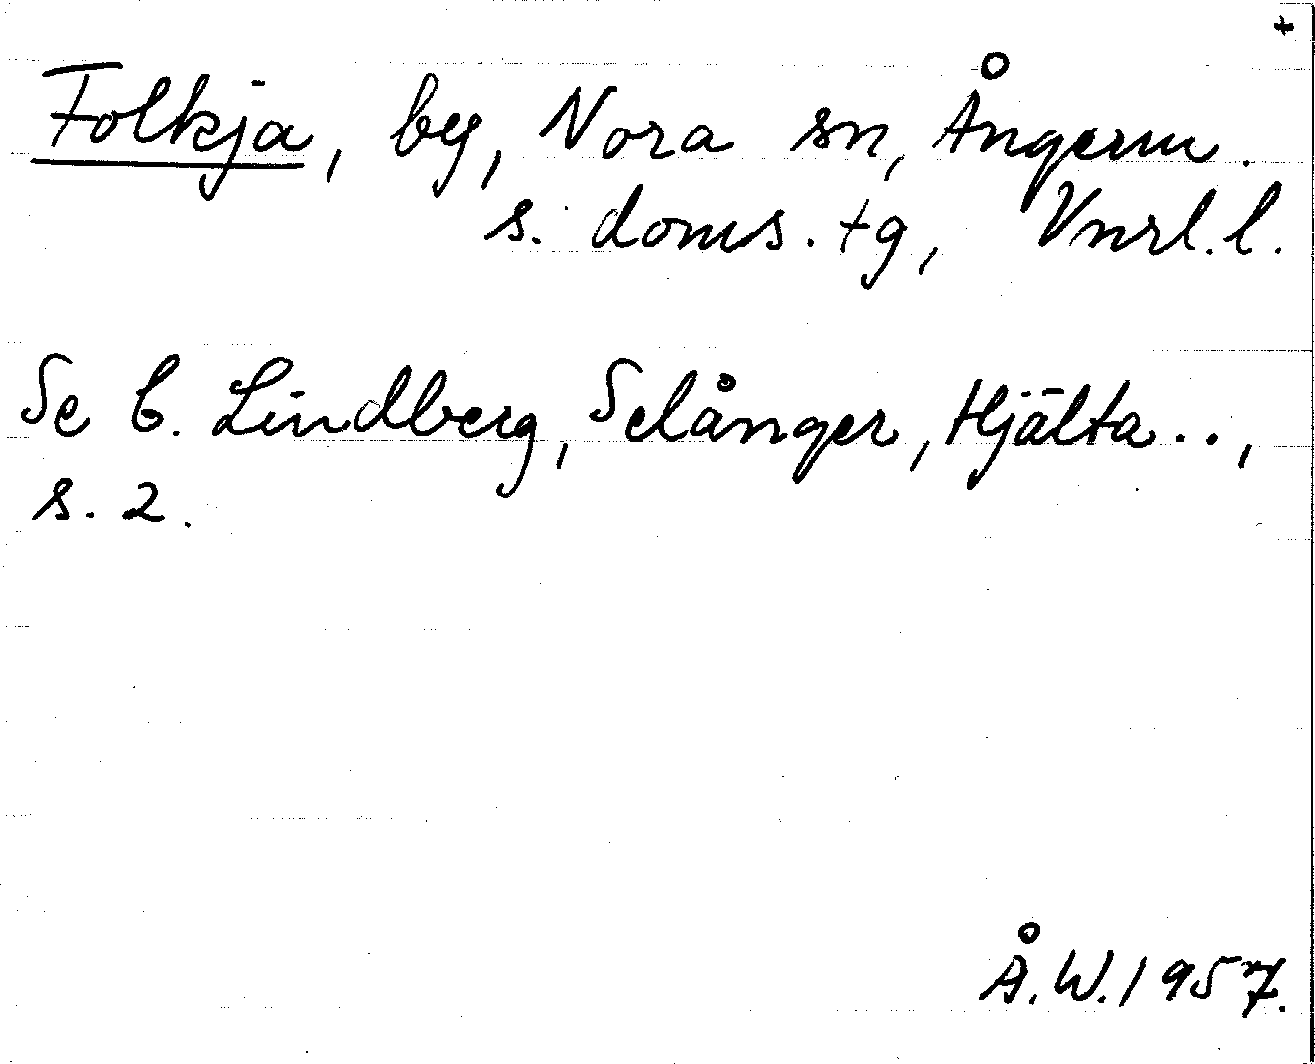 +
Folkja, by, Nora sn, Ångerm.
s. doms. tg, Vnrl.l.
Se C. Lindberg, Selånger, Hjälta..,
s. 2.
Å.W.1957.